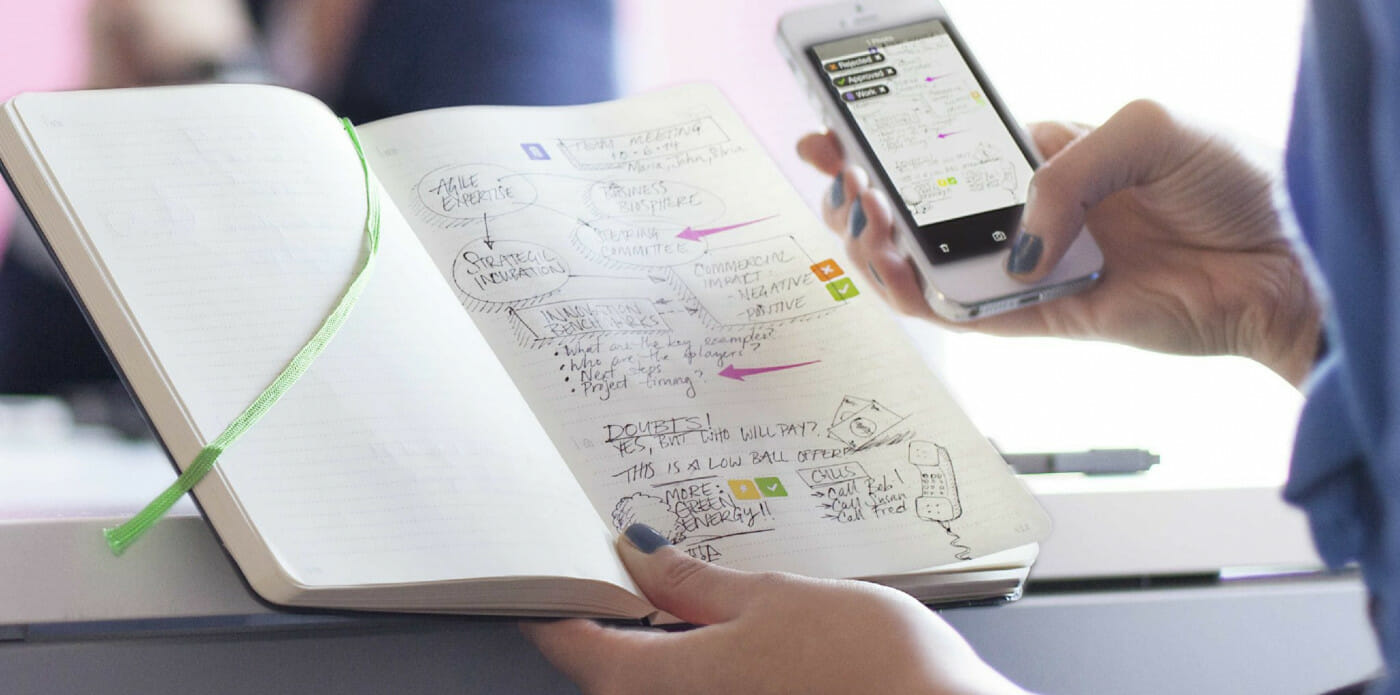 TEAM MEETING
10 - 6 - 14
Maria, John, Silvia
AGILE
EXPERTISE
BUSINESS
BIOSPHERE
STEARING
COMMITTEE
STRATEGIC
INCUBATION
COMMERCIAL
IMPACT:
- NEGATIVE
- POSITIVE
INNOVATION
BENCHMARKS
• What are the key examples?
• Who are the players?
• Next steps
• Project timing?
DOUBTS!
YES, BUT WHO WILL PAY?
THIS IS A LOW BALL OFFER
$
MORE:
GREEN
ENERGY!!
CALLS
Call Bob!
Call Susan
Call Fred
Rejected
Approved
Work